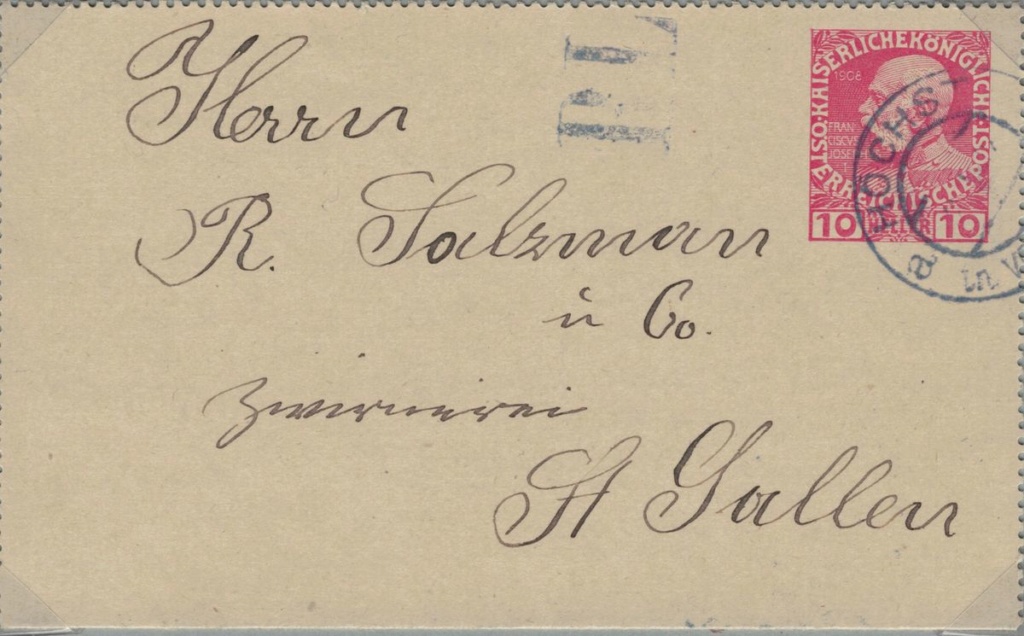 Herrn
R. Salzman
u Co.
Zwirnerei
St Gallen
KAISERLICHEKÖNIGLICHE
ÖSTERREICHISCHEPOST
1908
FRAN
CISCVS
JOSEF
10 HELLER 10
HÖCHS
a